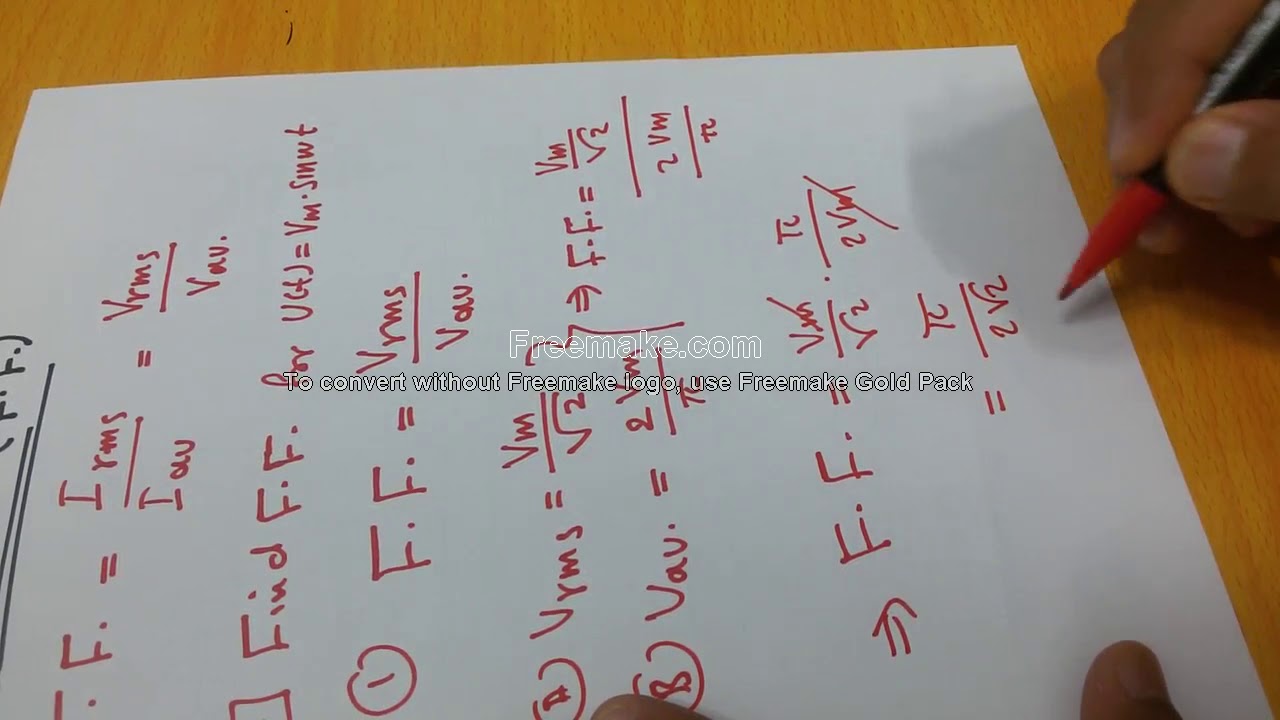 (F.F.)
F.F. = Irms / Iav = Vrms / Vav.
Find F.F. for v(t) = Vm. sinwt
① F.F. = Vrms / Vav.
Ⓐ Vrms = Vm / √2
Ⓑ Vav. = 2 Vm / π
⇒ F.F. = Vm / √2 / 2 Vm / π
⇒ F.F. = Vm / √2 . π / 2 Vm
= π / 2√2
Freemake.com
To convert without Freemake logo, use Freemake Gold Pack